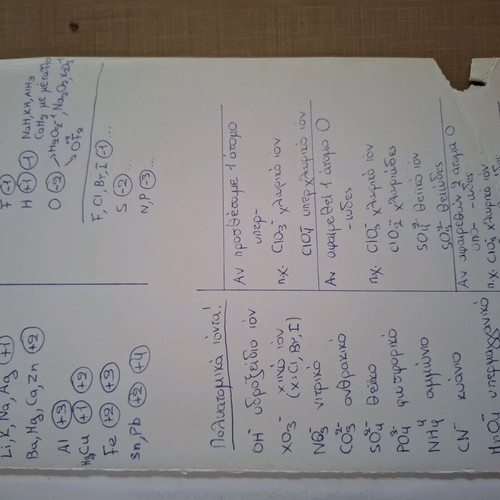 Li, K, Na, Ag +1
Ba, Mg, Ca, Zn +2
Al +3
Hg Cu +1 +2
Fe +2 +3
Sn, Pb +2 +4
F -1
H +1 -1 NaH, KH, AlH3
CaH2 με μέταλλο
O -2 → H2O2⁻¹, Na2O2, K2O2
↘ OF2⁺²
F, Cl, Br, I -1 ...
S -2 ...
N, P -3 ...
Πολυατομικά ιόντα!
OH⁻ υδροξείδιο ιόν
XO3⁻ χικό ιόν
(x: Cl, Br, I)
NO3⁻ νιτρικό
CO3²⁻ ανθρακικό
SO4²⁻ θειικό
PO4³⁻ φωσφορικό
NH4 αμμώνιο
CN⁻ κυάνιο
MnO4⁻ υπερμαγγανικό
Αν προσθέσουμε 1 άτομο
υπερ-
πχ. ClO3⁻ χλωρικό ιόν
ClO4⁻ υπερχλωρικό ιόν
Αν αφαιρεθεί 1 άτομο O
-ώδες
πχ. ClO3⁻ χλωρικό ιόν
ClO2⁻ χλωριώδες
SO4²⁻ θειικό ιόν
SO3²⁻ θειώδες
Αν αφαιρεθούν 2 άτομα O
υπο- -ώδες
πχ. ClO3⁻ χλωρικό ιόν